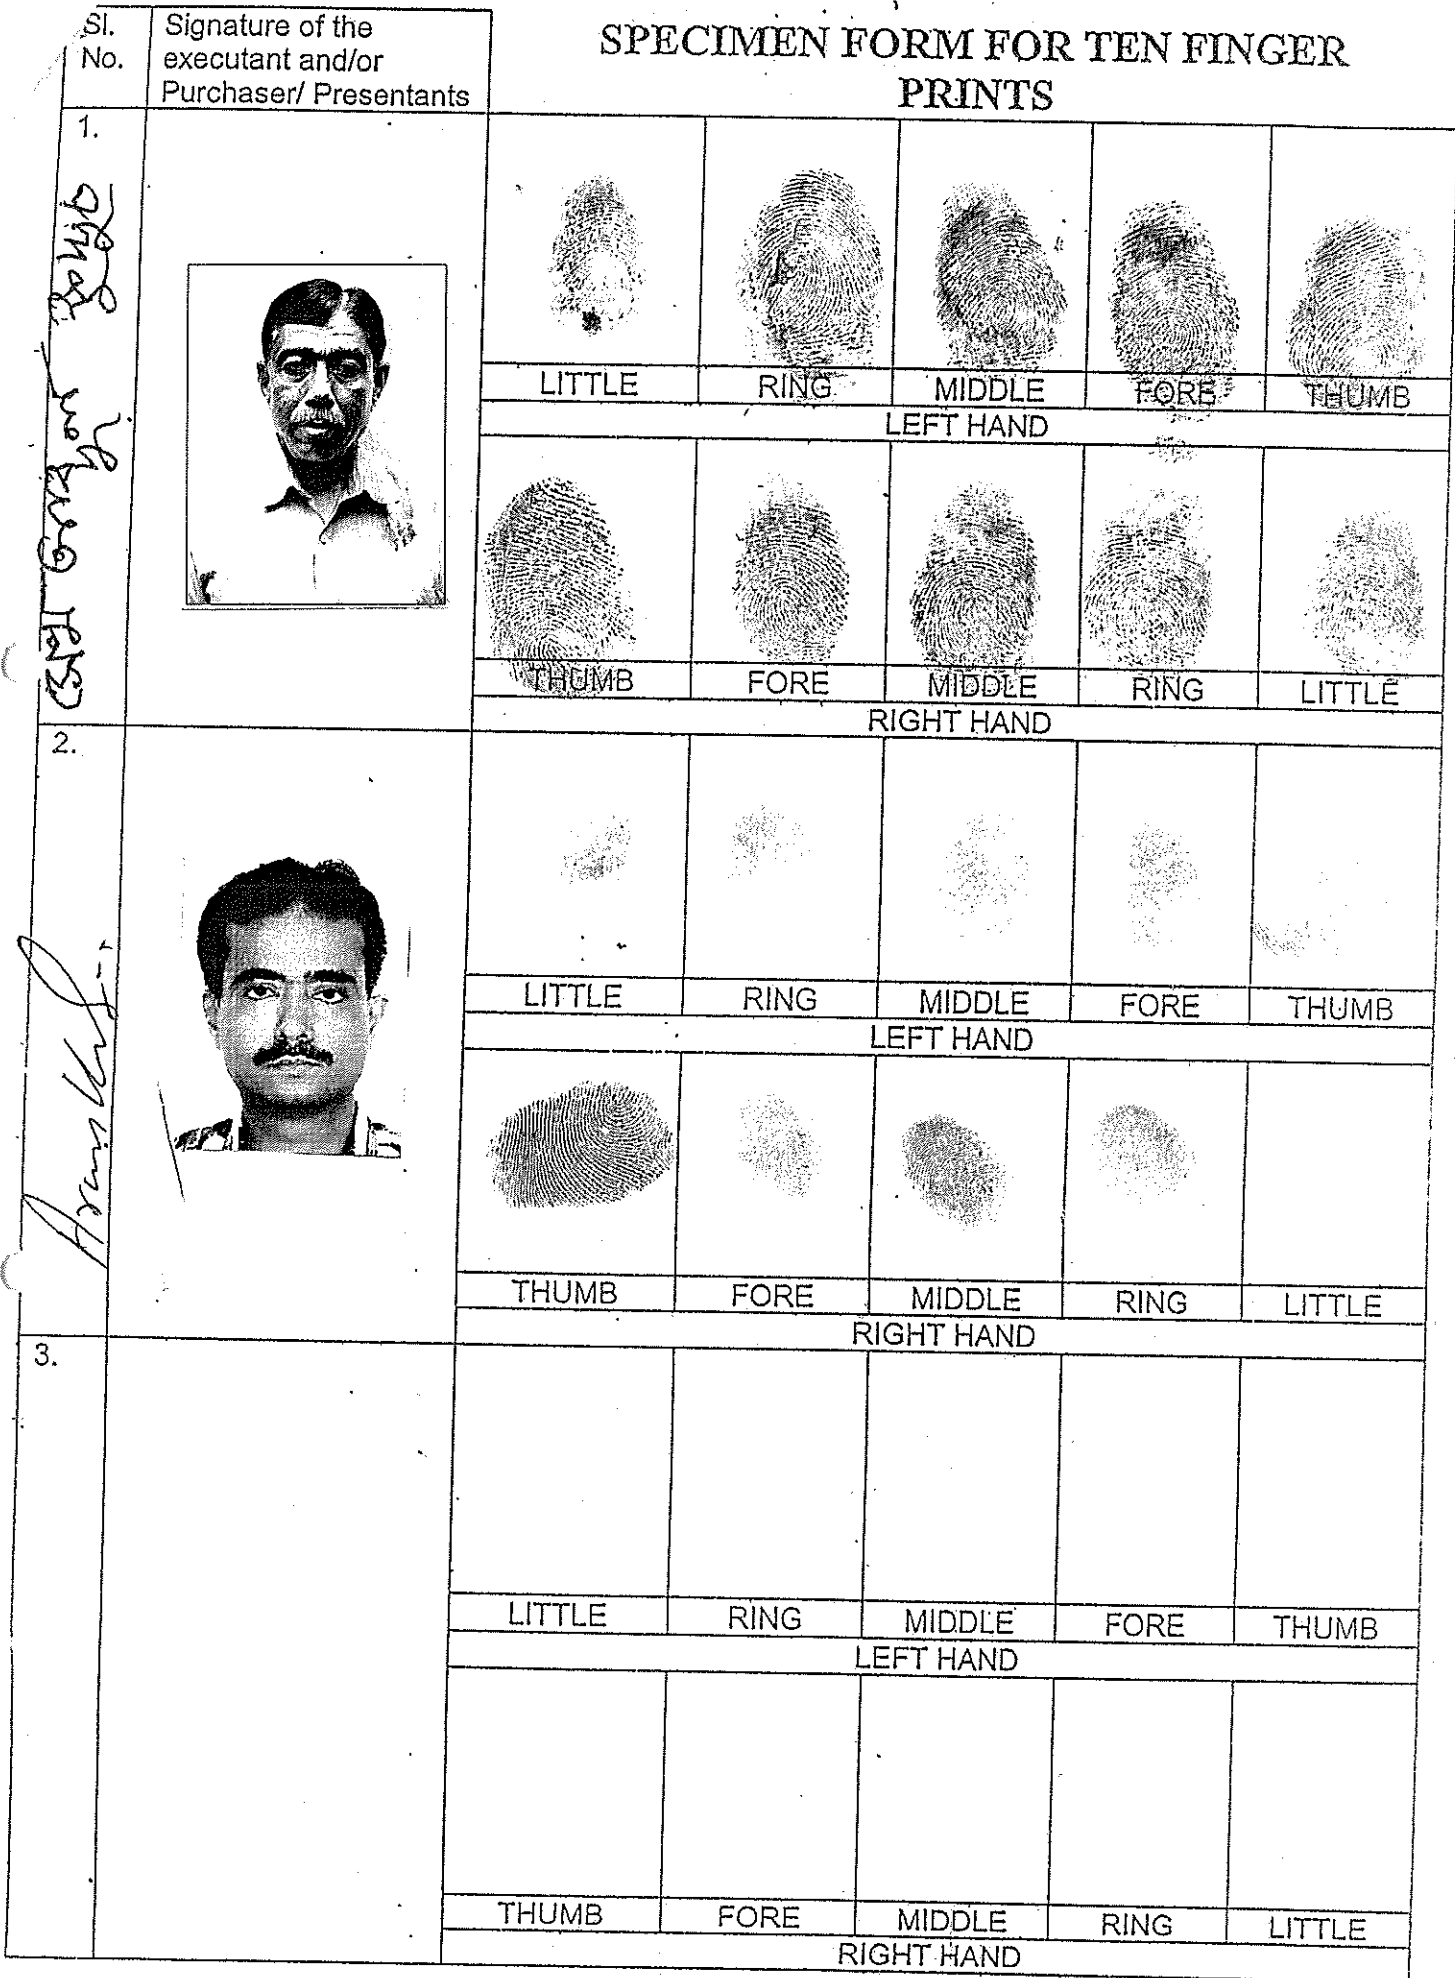 Sl.
No.
Signature of the
executant and/or
Purchaser/ Presentants
SPECIMEN FORM FOR TEN FINGER
PRINTS
1.
LITTLE RING MIDDLE FORE THUMB
LEFT HAND
THUMB FORE MIDDLE RING LITTLE
RIGHT HAND
2.
LITTLE RING MIDDLE FORE THUMB
LEFT HAND
THUMB FORE MIDDLE RING LITTLE
RIGHT HAND
3.
LITTLE RING MIDDLE FORE THUMB
LEFT HAND
THUMB FORE MIDDLE RING LITTLE
RIGHT HAND